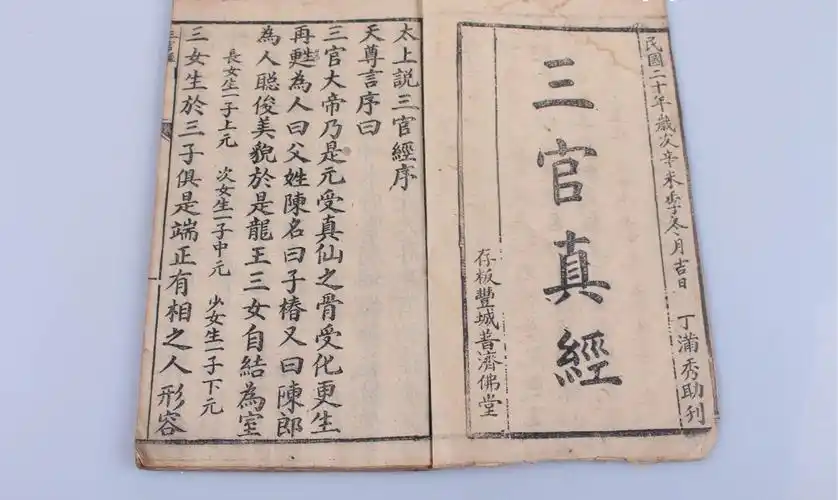 民國二十年歲次辛未季冬月吉日 丁滿秀助刊
三官真經
存板豐城普濟佛堂
太上說三官經序
天尊言序曰
三官大帝乃是元受真仙之骨受化更生
再甦為人曰父姓陳名曰子椿又曰陳郎
為人聰俊美貌於是龍王三女自結為室
長女生一子上元 次女生一子中元 少女生一子下元
三女生於三子俱是端正有相之人形容
三官經